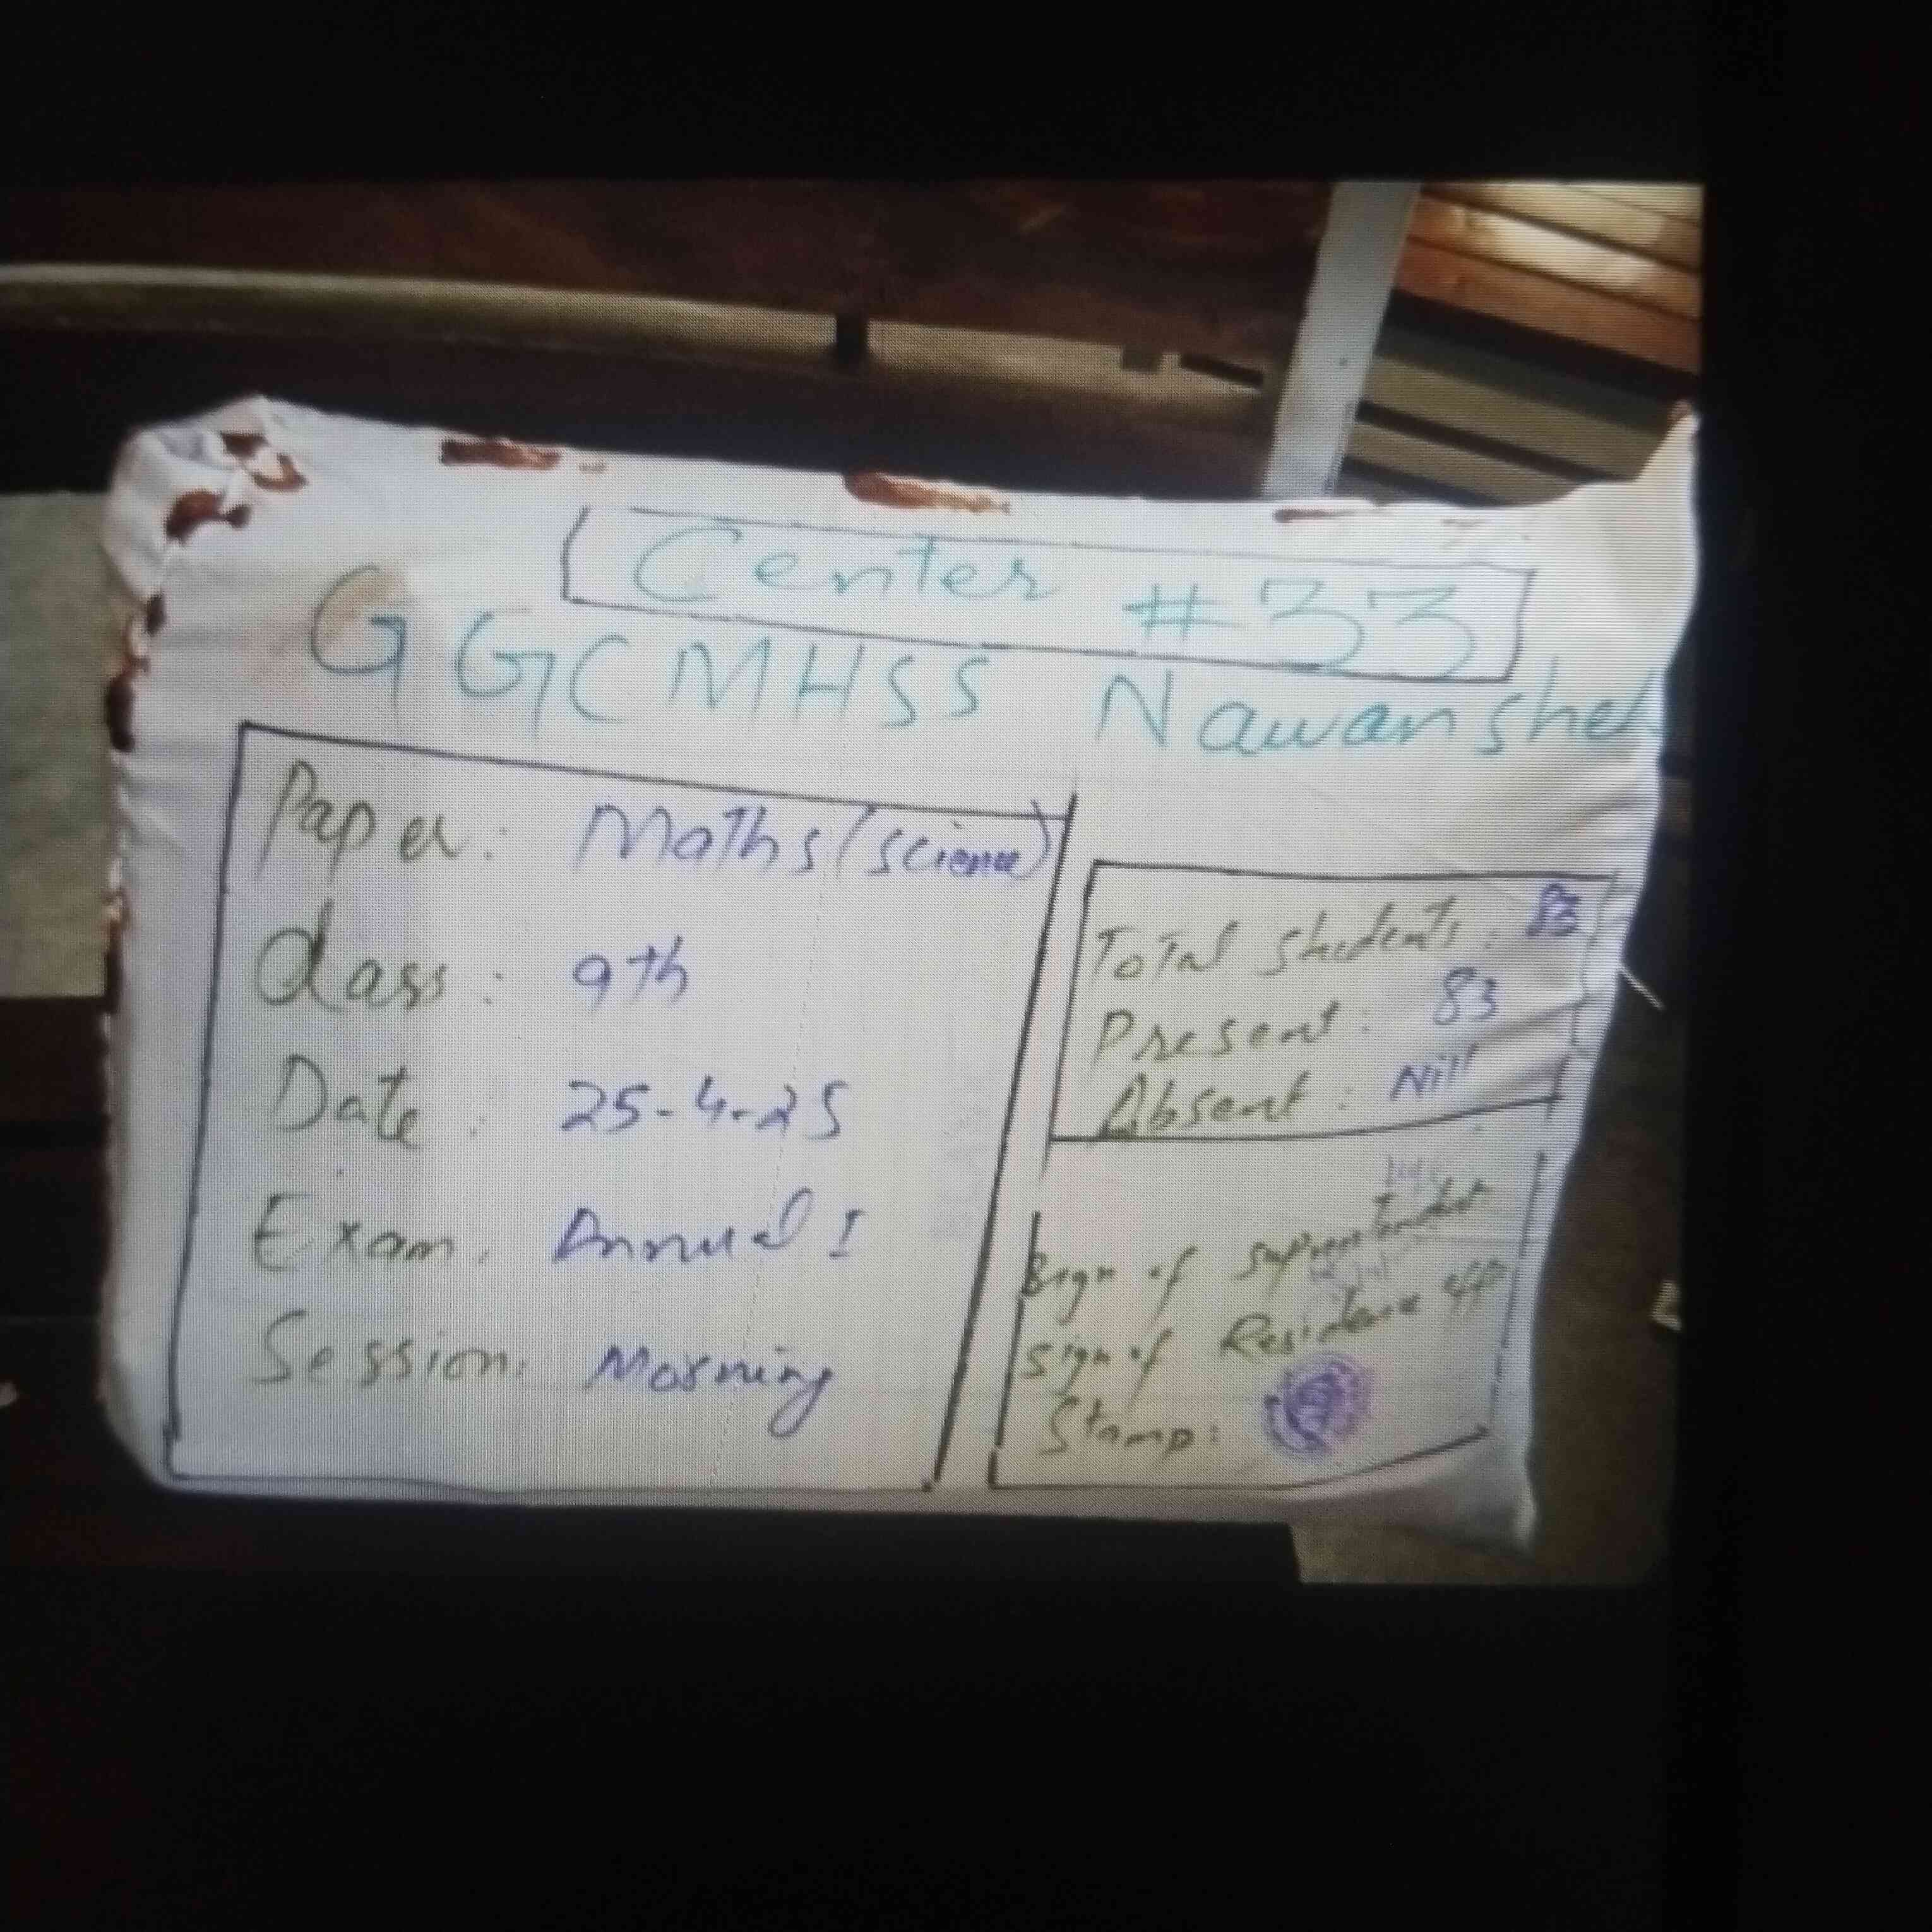 Center #33
GGCMHSS Nawanshe
Paper: Maths (science)
Class: 9th
Date: 25-4-25
Exam: Annual I
Session: Morning
Total Students: 83
Present: 83
Absent: Nill
Sign of
Sign of Residence
Stamp: